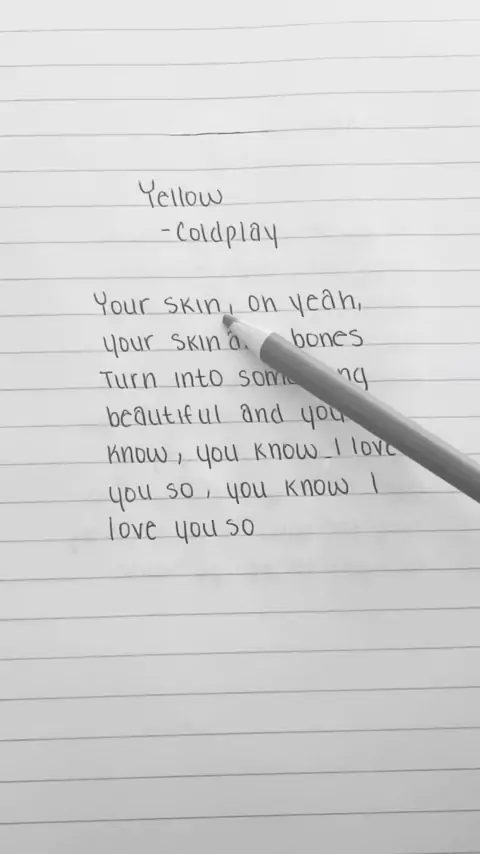 Yellow
-Coldplay
Your skin, oh yeah,
your skin bones
Turn into
beautiful and
know, you know I love
you so, you know I
love you so